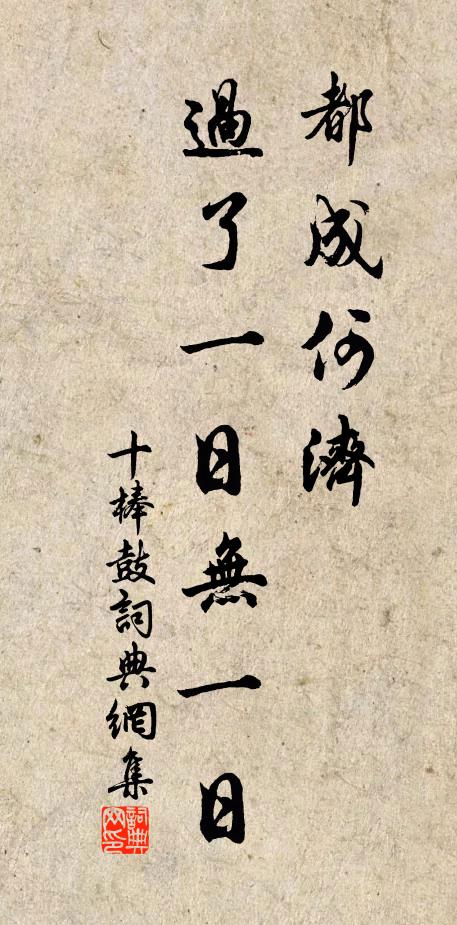 都成何濟
過了一日無一日
十棒鼓詞典網集
詞典
网印